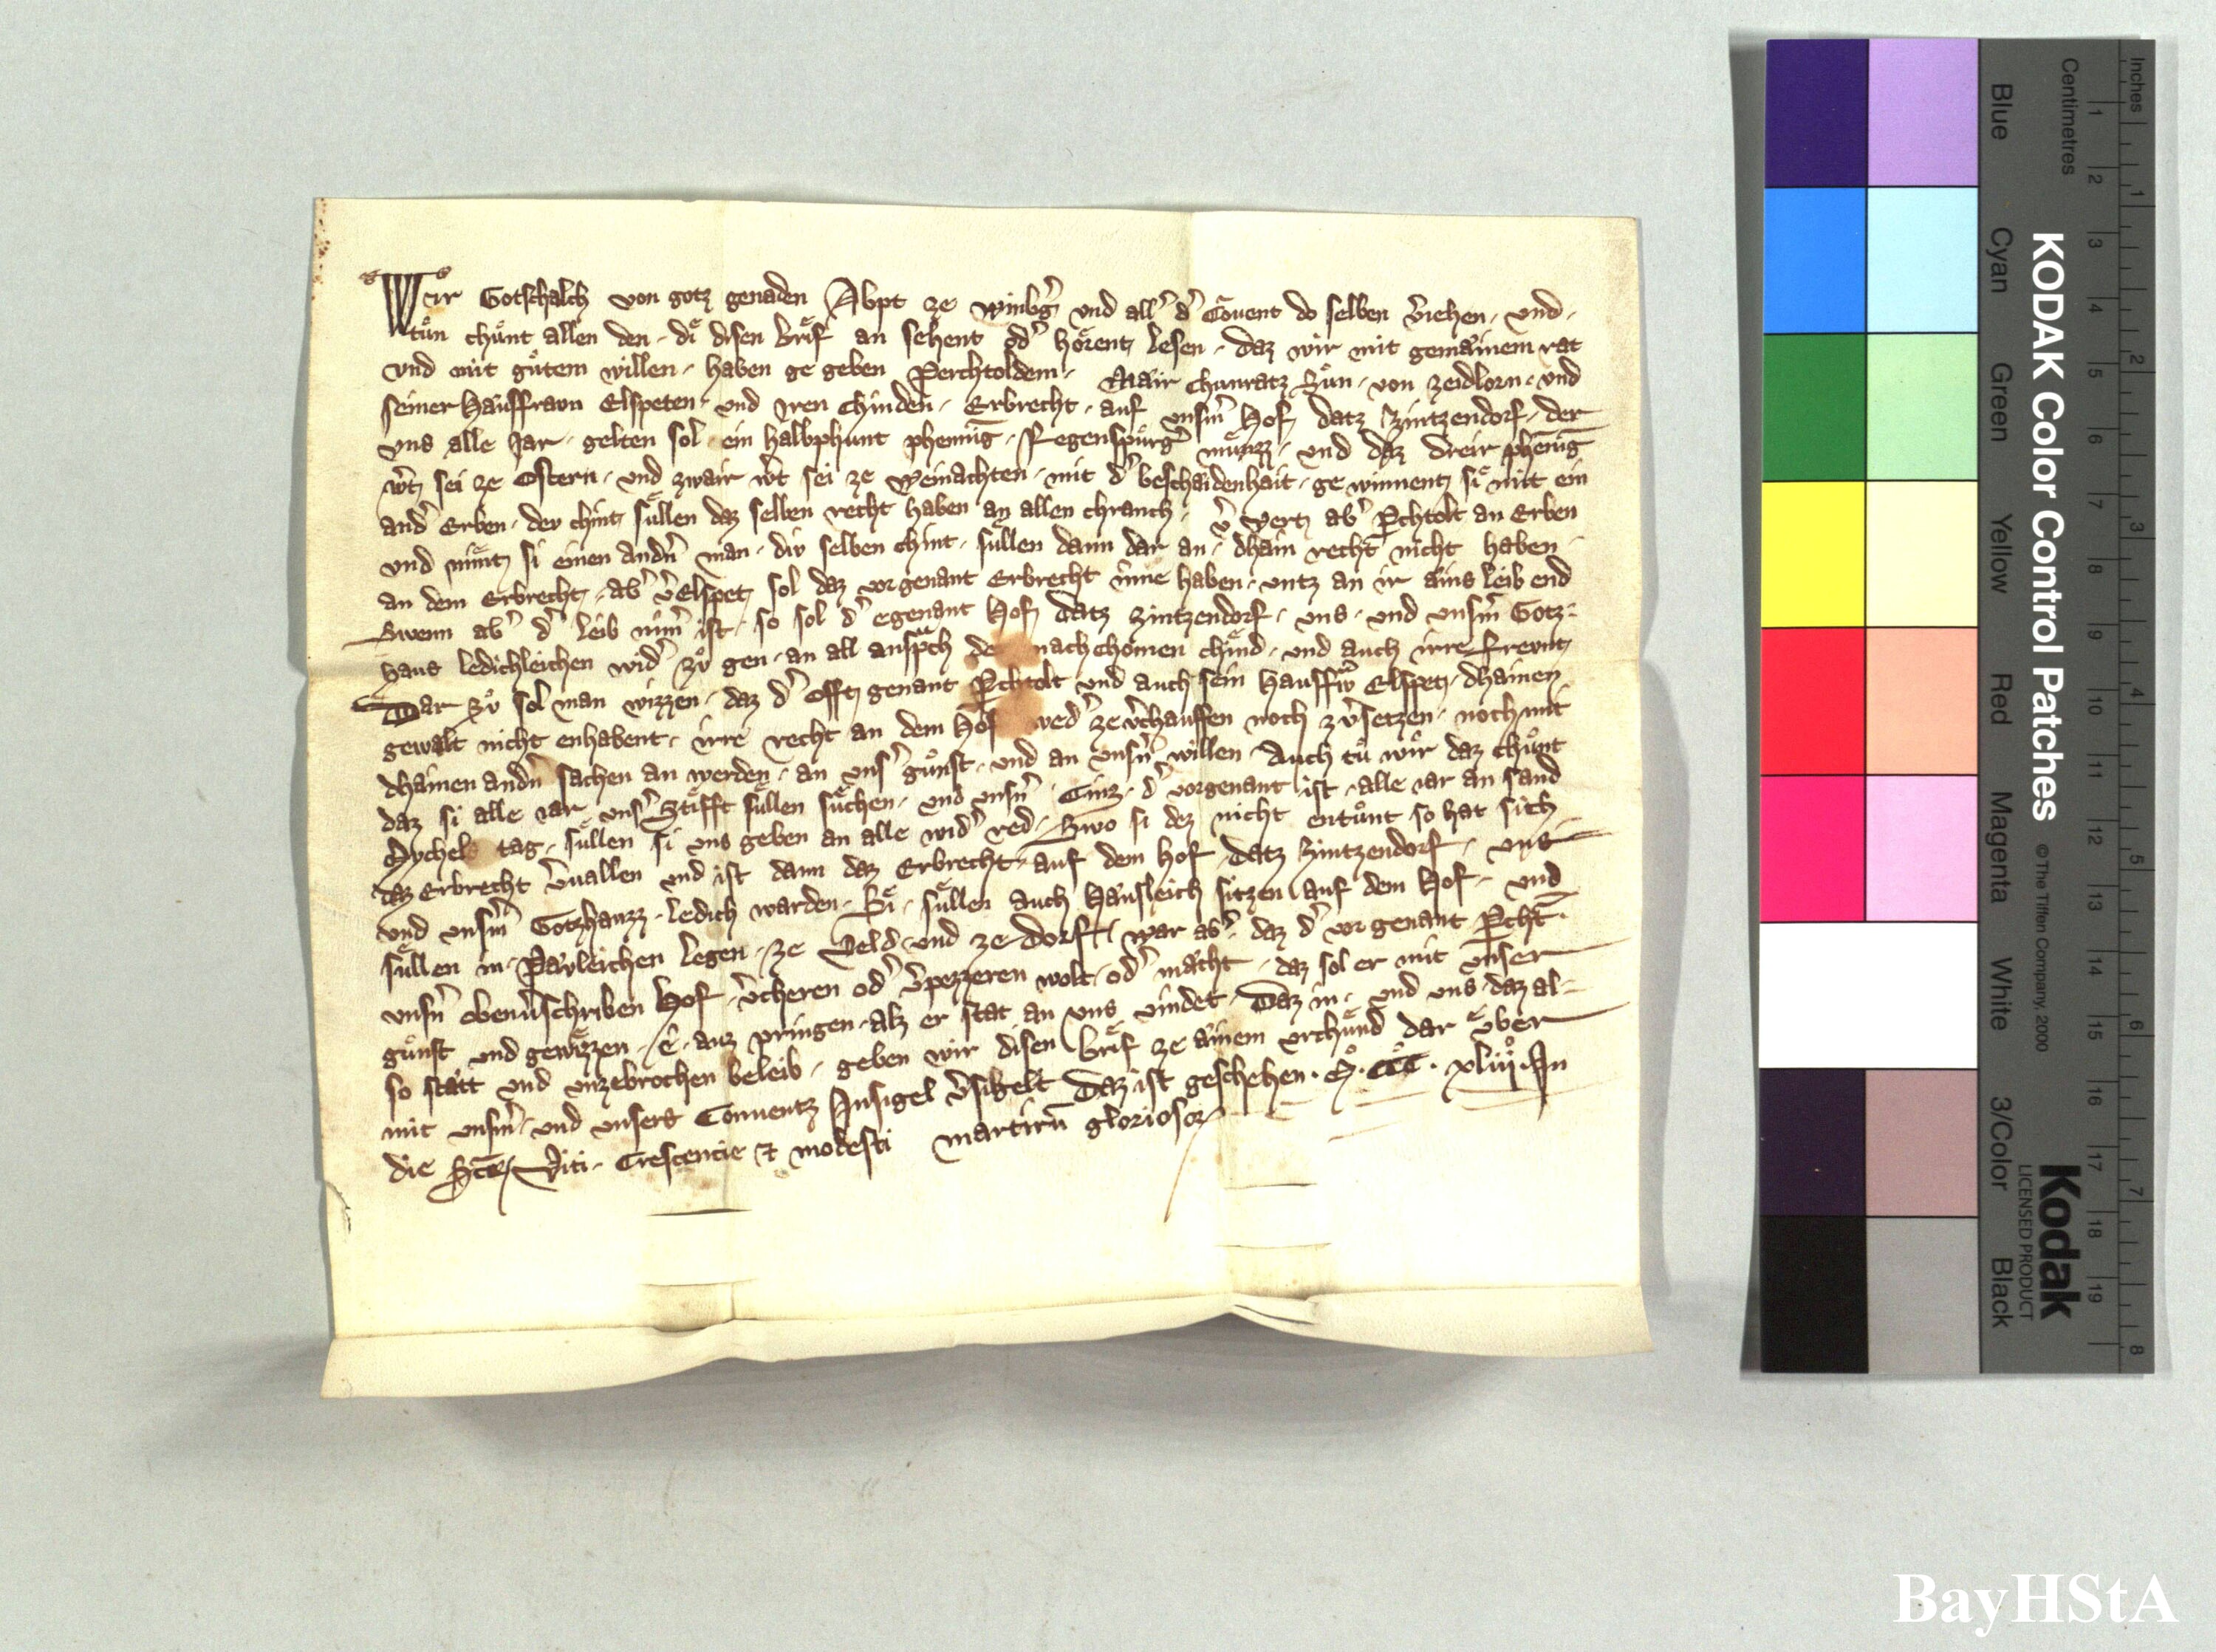 Wir Gotschalch von gotz genaden Abpt ze Winbg̉ vnd all̉ d̉ Cōuent do selben v̉iehen · vnd ·
tůn chůnt allen den · dı̊ disen brı̊f an sehent od̉ hoͤrent lesen · daz wir mit gemainem rat
vnd mit gůtem willen · haben ge geben Perchtoldem · Mair Chunratz Sůn · von zeidlorn · vnd
seiner Hausfravn Elspeten · vnd Iren chinden · Erbrecht · auf vnsm̉ Hof datz Zintzendorf · der
vns alle Jar · gelten sol ein halbphunt phenni̅g · Regenspůrg̉ můnzz · vnd daz dreir phēnig
w̉t sei ze Ostern · vnd zwair w̉t sei ze Weinachten · mit d̉ beschaidenhait · ge winnent si mit ein
and̉ Erben · dev chint suͤllen daz selben recht haben an allen chranch · v̉ Wert ab̉ P̱chtolt an Erben
vnd nimt si einen andn̉ man · div selben chint · suͤllen dann dar an · dhain recht nicht haben ·
an dem Erbrecht · ab̉ v̉ Elspet sol daz vorgenant Erbrecht inne haben · vntz an ir ains leib end
Swenn ab̉ d̉ leib nim̉ ist · so sol d̉ egenant Hof datz Zintzendorf · vns · vnd vnsm̉ Gotz=
haus ledichleichen wid̉ zů gen · an all ansprͣch de nach chomen chind · vnd auch irre frevnt
Dar Zů sol man wizzen · daz d̉ offt genant P̱chtolt vnd auch sein Hausfrw̉ Elspet · dhainen
gewalt nicht enhabent · irre recht an dem Hof wed̉ ze v̉chauffen noch zv̉setzen · noch mit
dhainen andn̉ sachen an werden · an vns̉ gůnst · vnd an vnsn̉ willen Auch tů wir daz chůnt
daz si alle iar vns̉ Stifft suͤllen suͤchen · vnd vnsn̉ Cinz · d̉ vorgenant ist · alle iar an sand
Mychels tag · suͤllen si vns geben an alle wid̉ red · Swo si dez nicht entůnt so hat sich
daz Erbrecht v̉uallen vnd ist dann daz Erbrecht · auf dem Hof datz Zintzendorf · vns
vnd vnsm̉ Gotzhauzz · ledich warden · Si · suͤllen auch Hausleich sitzen auf dem Hof · vnd
suͤllen in · Pavleichen legen · ze Veld · vnd ze Dorff · war ab̉ · daz d̉ vor genant P̱cht̄ ·
vnsn̉ obenv̉schriben Hof · v̉cheren od̉ v̉pezzeren wolt · od̉ macht · daz sol er mit vnser
gůnst vnd gewizzen · ê · auz pringen · alz er stat an vns vindet · Daz in · vnd vns · daz al=
so staͤtt vnd vnzebrochen beleib · geben wir disen brı̊f ze ainem vrchuͤnd dar uͤber
mit vnsm̉ · vnd vnsers Conuentz Insigel v̉sigelt Daz ist geschehen · M̊ · CC̊C · xliii̊ · In
die Sc̄oꝝ Viti · Crescencie ⁊ modesti martirū glorioſoꝝ
Inches
Centimetres
KODAK Color Control Patches
© The Tiffen Company, 2000
Kodak
LICENSED PRODUCT
Blue
Cyan
Green
Yellow
Red
Magenta
White
3/Color
Black
1 2 3 4 5 6 7 8 9 10 11 12 13 14 15 16 17 18 19
1 2 3 4 5 6 7 8
BayHStA